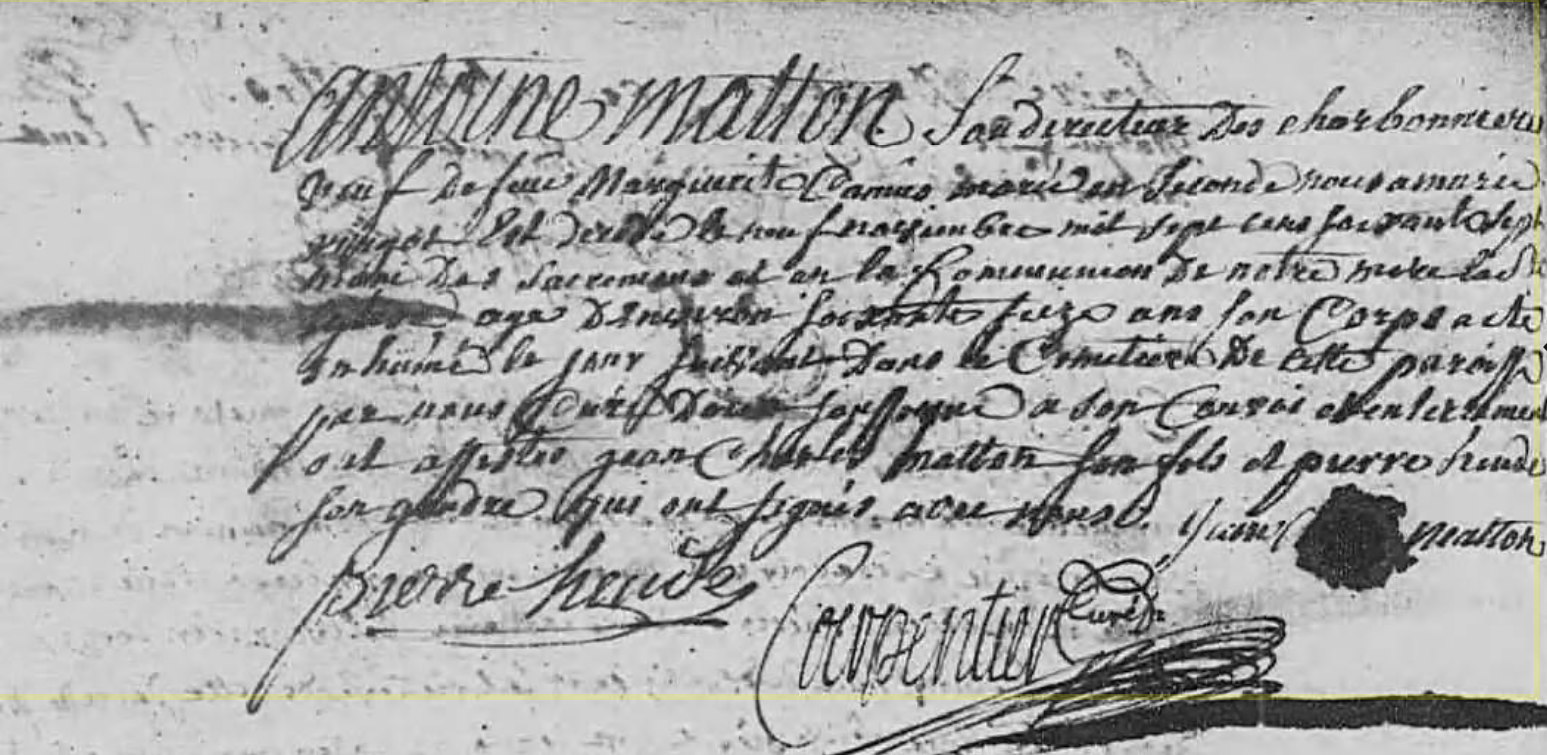 antoine matton sou directeur des charbonnieres
veuf de feüe Marguerite Camus marié en seconde nous a marie
est decedé le neuf novembre mil sept cens soixante sept
muni des sacremens et en la Communion de notre mere la Ste
eglise agé d'environ soixante seize ans son Corps a ete
inhumé le jour suivant dans le Cimetiere de cette paroisse
par nous Curé doien soussigné a son Convoi et enterrement
ont assistes jean Charles matton son fils et pierre heude
son gendre qui ont signés avec nous. matton
pierre heude Carpentier Curé